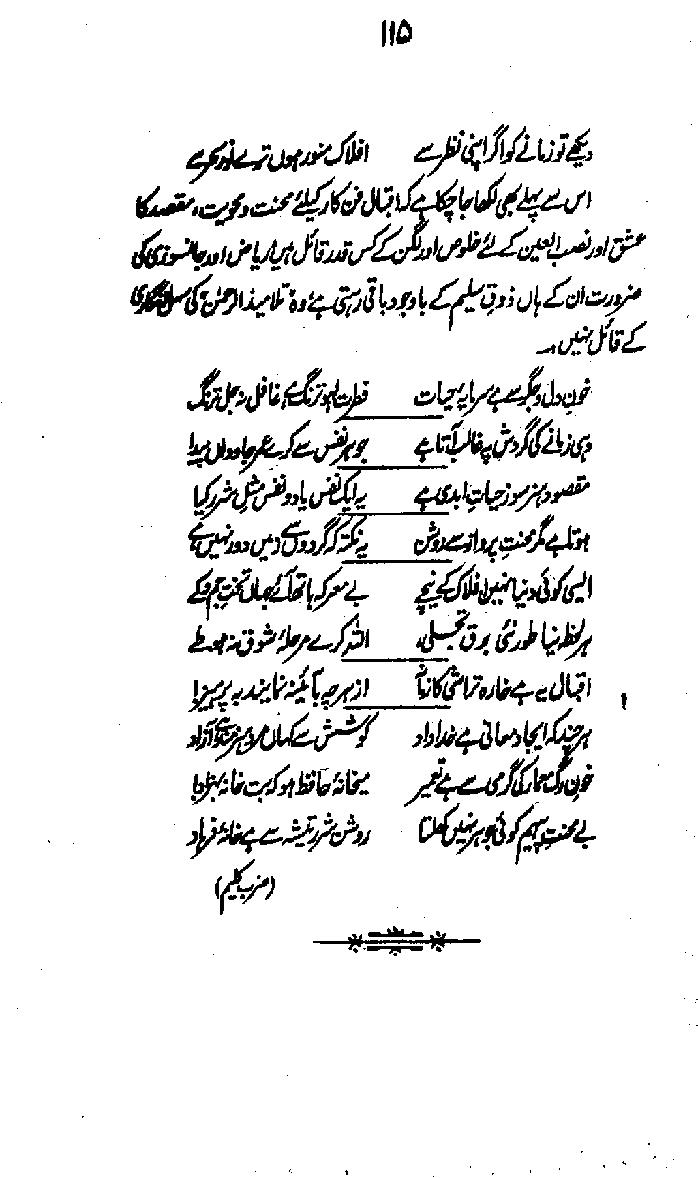 ۱۱۵
دیکھے تو زمانے کو اگر اپنی نظر سے افلاک منور ہوں ترے نورِ سحر سے
اس سے پہلے بھی لکھا جا چکا ہے کہ اقبال فن کار کیلئے محنت و محویت، مقصد کا
عشق اور نصب العین کے لئے خلوص اور لگن کے کس قدر قائل ہیں ریاض اور جانسوزی کی
ضرورت ان کے ہاں ذوقِ سلیم کے باوجود باقی رہتی ہے وہ تلامیذ الرحمٰن کی سہل انگاری
کے قائل نہیں۔
خونِ دل و جگر سے ہے سرمایۂ حیات فطرت لہو ترنگ ہے غافل نہ جل ترنگ
وہی زمانے کی گردش پہ غالب آتا ہے جو ہر نفس سے کرے عمرِ جاوداں پیدا
مقصودِ ہنر سوزِ حیاتِ ابدی ہے یہ ایک نفس یا دو نفس مثلِ شرر کیا
ہوتا ہے مگر محنتِ پرواز سے روشن یہ نکتہ کہ گردوں سے زمیں دور نہیں ہے
ایسی کوئی دنیا نہیں افلاک کے نیچے بے معرکہ ہاتھ آئے جہاں تختِ جم و کے
ہر لحظہ نیا طور نئی برقِ تجلی اللہ کرے مرحلۂ شوق نہ ہو طے
اقبال یہ ہے خارہ تراشی کا زمانہ از ہر چہ بآئینہ نمایند بہ پرہیز
ہر چند کہ ایجادِ معانی ہے خداداد کوشش سے کہاں مردِ ہنرمند ہے آزاد
خونِ رگِ معمار کی گرمی سے ہے تعمیر میخانۂ حافظ ہو کہ بت خانۂ بہزاد
بے محنتِ پیہم کوئی جوہر نہیں کھلتا روشن شررِ تیشہ سے ہے خانۂ فرہاد
(ضربِ کلیم)